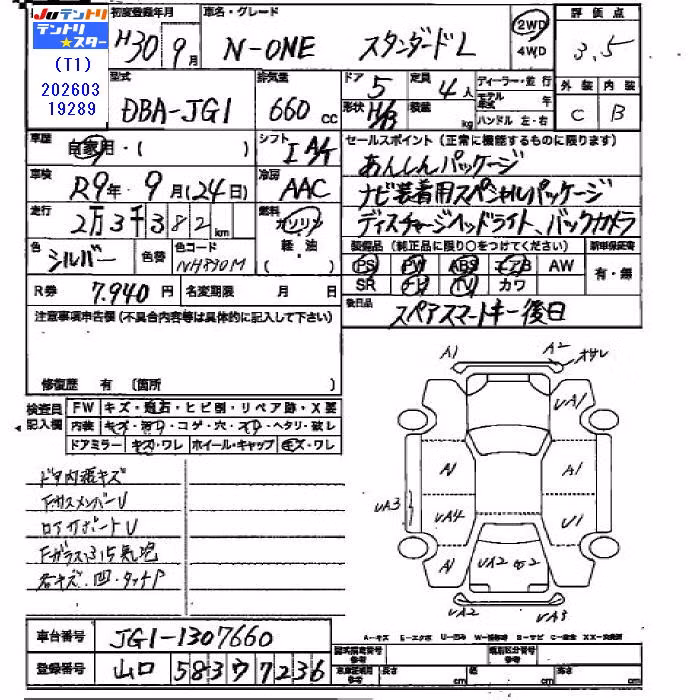 Juテントリ
テントリ★スター
(T1)
202603
19289
初度登録年月
H30年9月
車名・グレード
N-ONE スタンダードL
2WD
4WD
評価点
3.5
型式
DBA-JG1
排気量
660cc
ドア
5
形状
H/B
定員
4人
積載
kg
ディーラー・並行
モデル年式 年
ハンドル 左・右
外装 内装
C B
車歴
自家用・( )
シフト
I A/T
セールスポイント(正常に機能するものに限ります)
あんしんパッケージ
ナビ装着用スペシャルパッケージ
ディスチャージヘッドライト、バックカメラ
車検
R9年 9月(24日)
冷房
AAC
走行
2万3千382km
燃料
ガソリン
軽油
( )
色
シルバー
色替
色コード
NH830M
装備品(純正品に限り○をつけてください)
新車保証書
PS PW ABS エアB AW
SR ナビ TV カワ
有・無
R券
7,940円
名変期限 月 日
後日品
スペアスマートキー後日
注意事項申告欄(不具合内容等は具体的に記入して下さい)
修復歴 有 (箇所 )
検査員記入欄
FW キズ・飛石・ヒビ割・リペア跡・X要
内装 キズ・汚レ・コゲ・穴・スレ・ヘタリ・破レ
ドアミラー キズ・ワレ ホイール・キャップ キズ・ワレ
ドア内張キズ
FクロスメンバーU
ロアサポートU
Fガラスふち気泡
各キズ・凹・タッチP
A1
A2
オサレ
UA1
A1
A1
UA3
UA4
U1
A1
UA2
UA2
UA3
A-キズ E-エクボ U-凹み W-補修跡 S-サビ C-腐食 XX-交換済
車台番号
JG1-1307660
登録番号
山口 583 ウ 7236
型式指定番号 参考
類別区分番号 参考
車庫証明用 参考
長さ cm
幅 cm
高さ cm